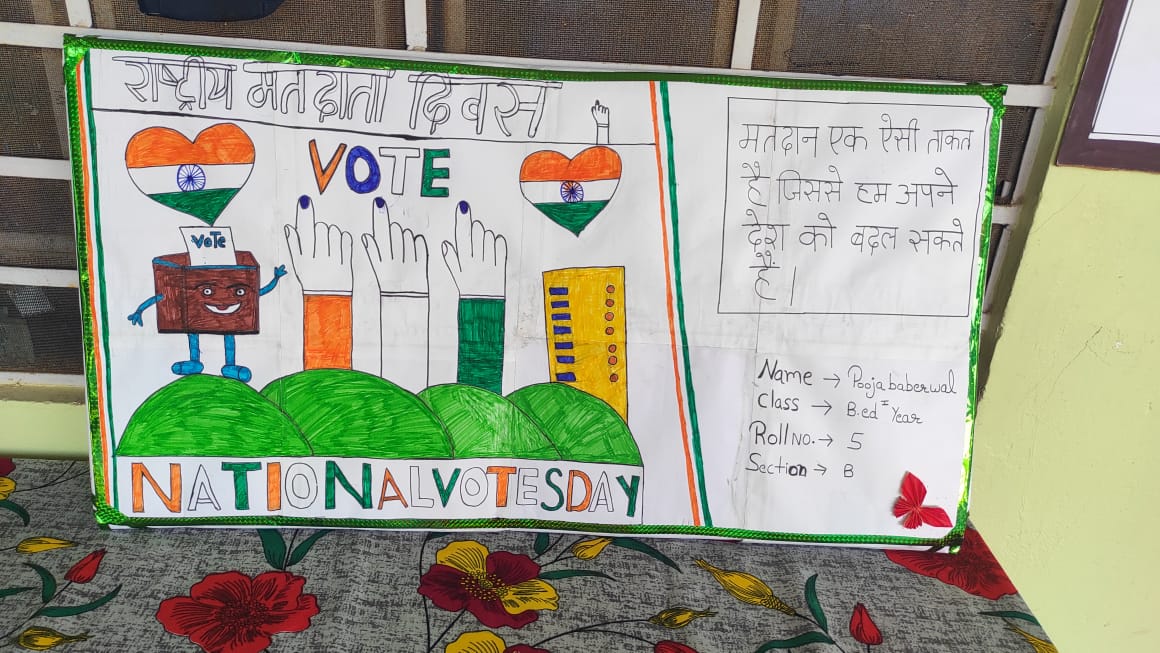 राष्ट्रीय मतदाता दिवस
VOTE
VoTe
NATIONALVOTESDAY
मतदान एक ऐसी ताकत
है जिससे हम अपने
देश को बदल सकते
हैं |
Name → Pooja baberwal
Class → B.ed I Year
Roll No. → 5
Section → B